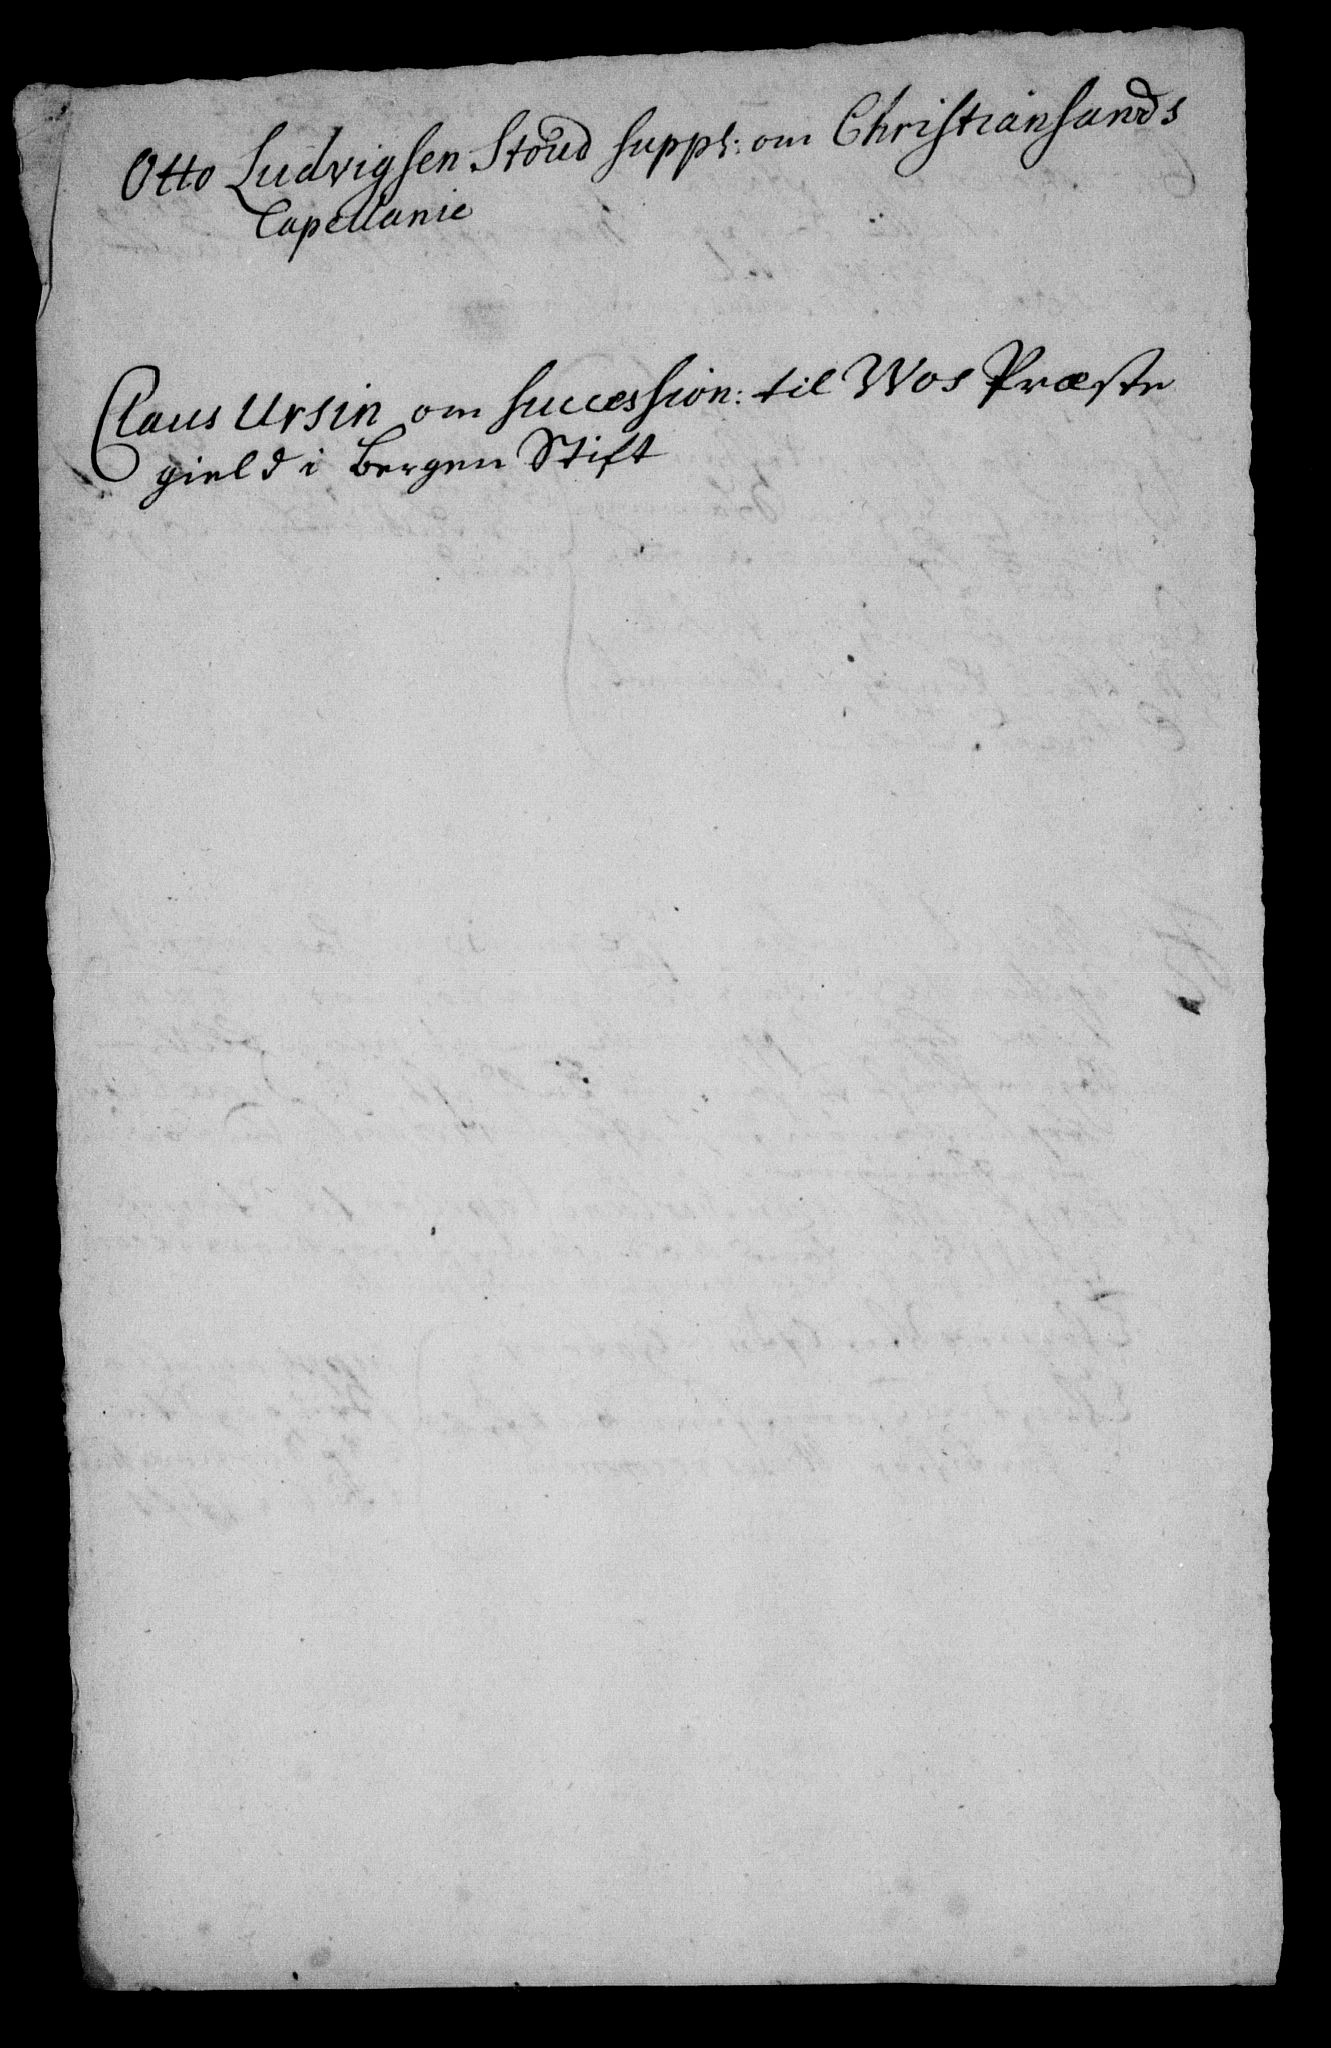 Otto Ludvigsen Stoud suppl: om Christiansands
Capellanie
Claus Ursin om succession: til Wos Præste
gield i Bergen Stift